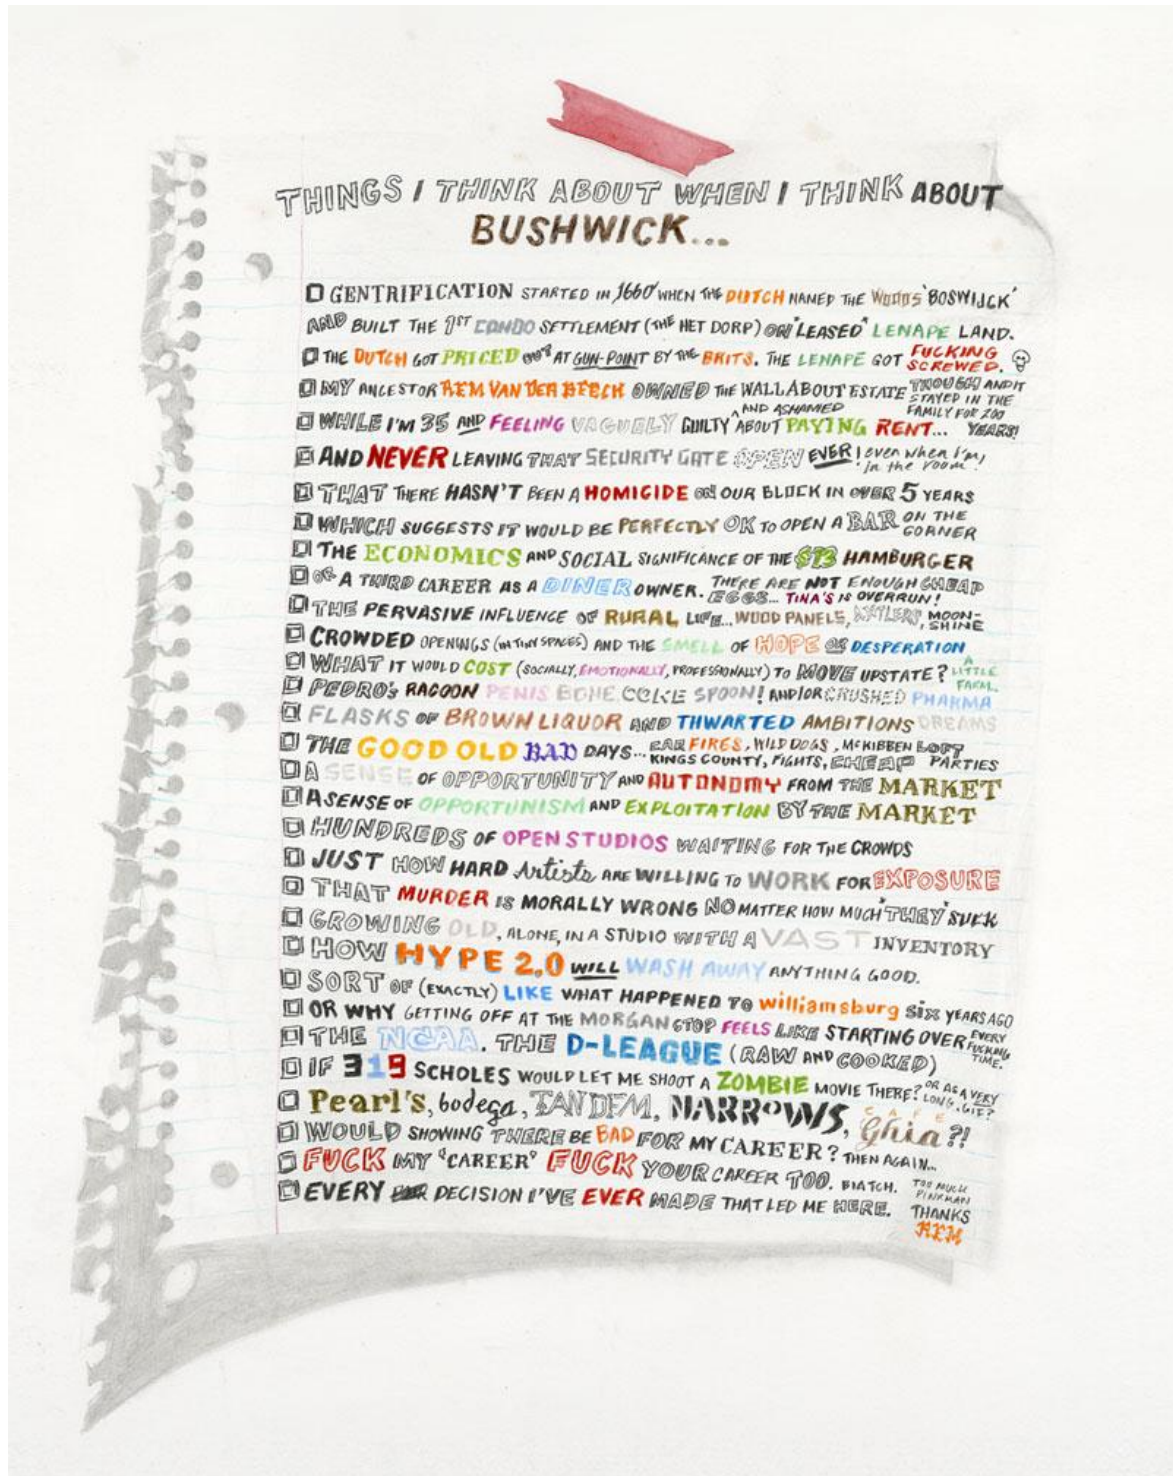 THINGS I THINK ABOUT WHEN I THINK ABOUT
BUSHWICK...
GENTRIFICATION STARTED IN 1660 WHEN THE DUTCH NAMED THE WOODS 'BOSWIJCK'
AND BUILT THE 1ST CONDO SETTLEMENT (THE HET DORP) ON "LEASED" LENAPE LAND.
THE DUTCH GOT PRICED OUT AT GUN-POINT BY THE BRITS. THE LENAPE GOT FUCKING SCREWED.
MY ANCESTOR REM VAN DER BEECK OWNED THE WALLABOUT ESTATE THOUGH AND IT STAYED IN THE FAMILY FOR 200 YEARS!
WHILE I'M 35 AND FEELING VAGUELY GUILTY AND ASHAMED ABOUT PAYING RENT...
AND NEVER LEAVING THAT SECURITY GATE OPEN EVER! even when I'm in the room!
THAT THERE HASN'T BEEN A HOMICIDE ON OUR BLOCK IN OVER 5 YEARS
WHICH SUGGESTS IT WOULD BE PERFECTLY OK TO OPEN A BAR ON THE CORNER
THE ECONOMICS AND SOCIAL SIGNIFICANCE OF THE $13 HAMBURGER
OF A THIRD CAREER AS A DINER OWNER. THERE ARE NOT ENOUGH CHEAP EGGS... TINA'S IS OVERRUN!
THE PERVASIVE INFLUENCE OF RURAL LIFE... WOOD PANELS, ANTLERS, MOON-SHINE
CROWDED OPENINGS (IN TINY SPACES) AND THE SMELL OF HOPE OR DESPERATION
WHAT IT WOULD COST (SOCIALLY, EMOTIONALLY, PROFESSIONALLY) TO MOVE UPSTATE? A LITTLE FARM.
PEDRO'S RACOON PENIS BONE COKE SPOON! AND/OR CRUSHED PHARMA
FLASKS OF BROWN LIQUOR AND THWARTED AMBITIONS DREAMS
THE GOOD OLD BAD DAYS... CAR FIRES, WILD DOGS, MCKIBBEN LOFT KINGS COUNTY, FIGHTS, CHEAP PARTIES
A SENSE OF OPPORTUNITY AND AUTONOMY FROM THE MARKET
A SENSE OF OPPORTUNISM AND EXPLOITATION BY THE MARKET
HUNDREDS OF OPEN STUDIOS WAITING FOR THE CROWDS
JUST HOW HARD Artists ARE WILLING TO WORK FOR EXPOSURE
THAT MURDER IS MORALLY WRONG NO MATTER HOW MUCH "THEY" SUCK
GROWING OLD, ALONE, IN A STUDIO WITH A VAST INVENTORY
HOW HYPE 2.0 WILL WASH AWAY ANYTHING GOOD.
SORT OF (EXACTLY) LIKE WHAT HAPPENED TO williamsburg SIX YEARS AGO
OR WHY GETTING OFF AT THE MORGAN STOP FEELS LIKE STARTING OVER EVERY FUCKING TIME.
THE NCAA. THE D-LEAGUE (RAW AND COOKED)
IF 319 SCHOLES WOULD LET ME SHOOT A ZOMBIE MOVIE THERE? OR AS A VERY LONG .GIF?
Pearl's, bodega, TANDEM, NARROWS, CAFE Ghia?!
WOULD SHOWING THERE BE BAD FOR MY CAREER? THEN AGAIN...
FUCK MY "CAREER" FUCK YOUR CAREER TOO. BIATCH. TOO MUCH PINKMAN
EVERY DECISION I'VE EVER MADE THAT LED ME HERE. THANKS
REM